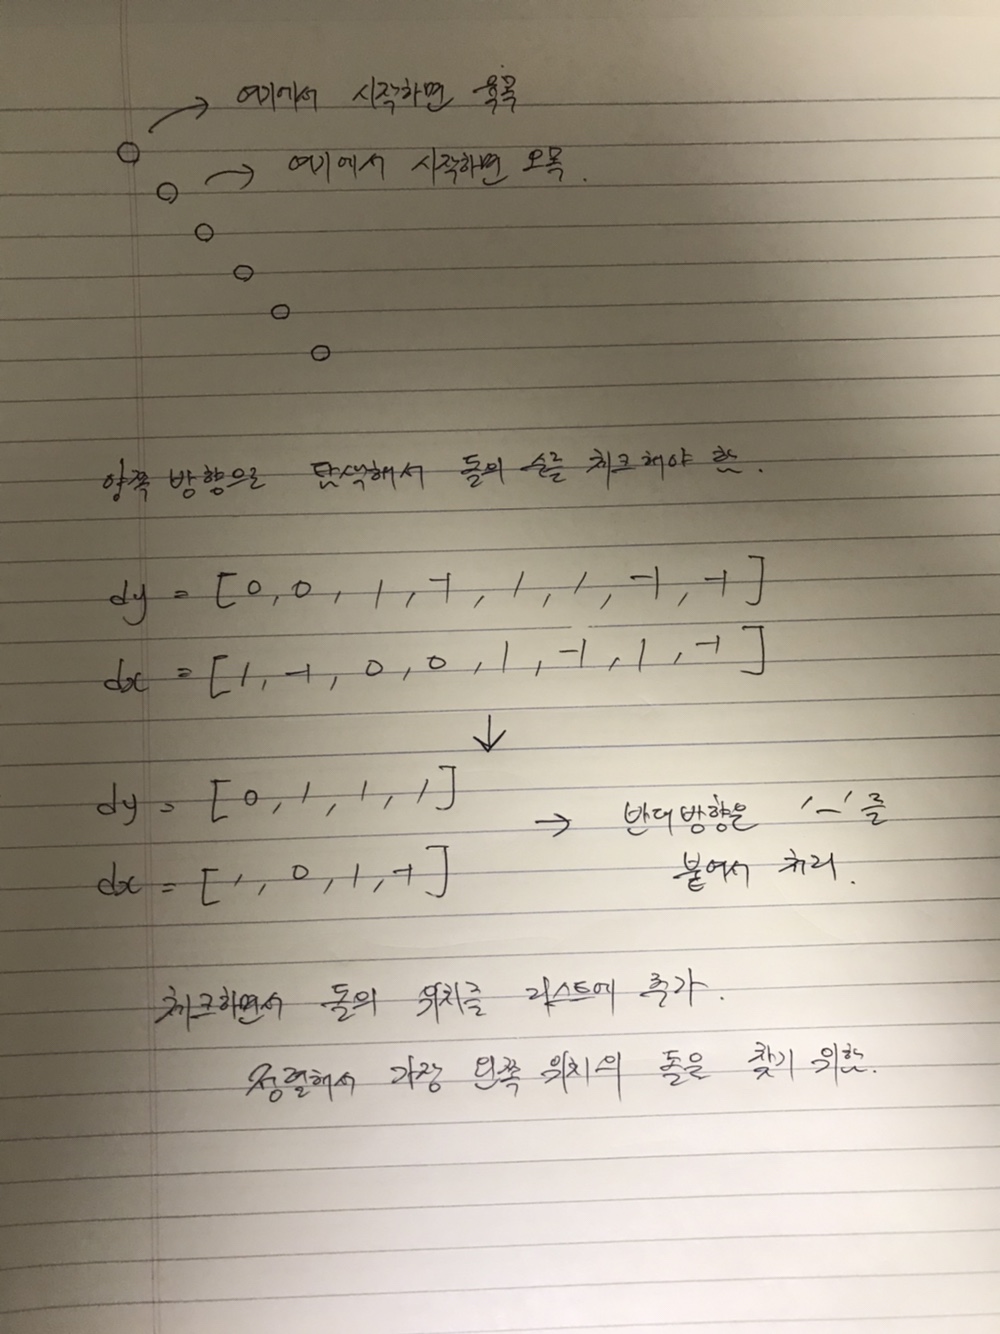 여기에서 시작하면 육목
여기에서 시작하면 오목.
양쪽 방향으로 탐색해서 돌의 수를 체크해야 함.
dy = [0, 0, 1, -1, 1, 1, -1, -1]
dx = [1, -1, 0, 0, 1, -1, 1, -1]
↓
dy = [0, 1, 1, 1]
→ 반대방향은 '-'를
dx = [1, 0, 1, -1]
붙여서 처리.
체크하면서 돌의 위치를 리스트에 추가.
정렬해서 가장 왼쪽 위치의 돌을 찾기 위함.